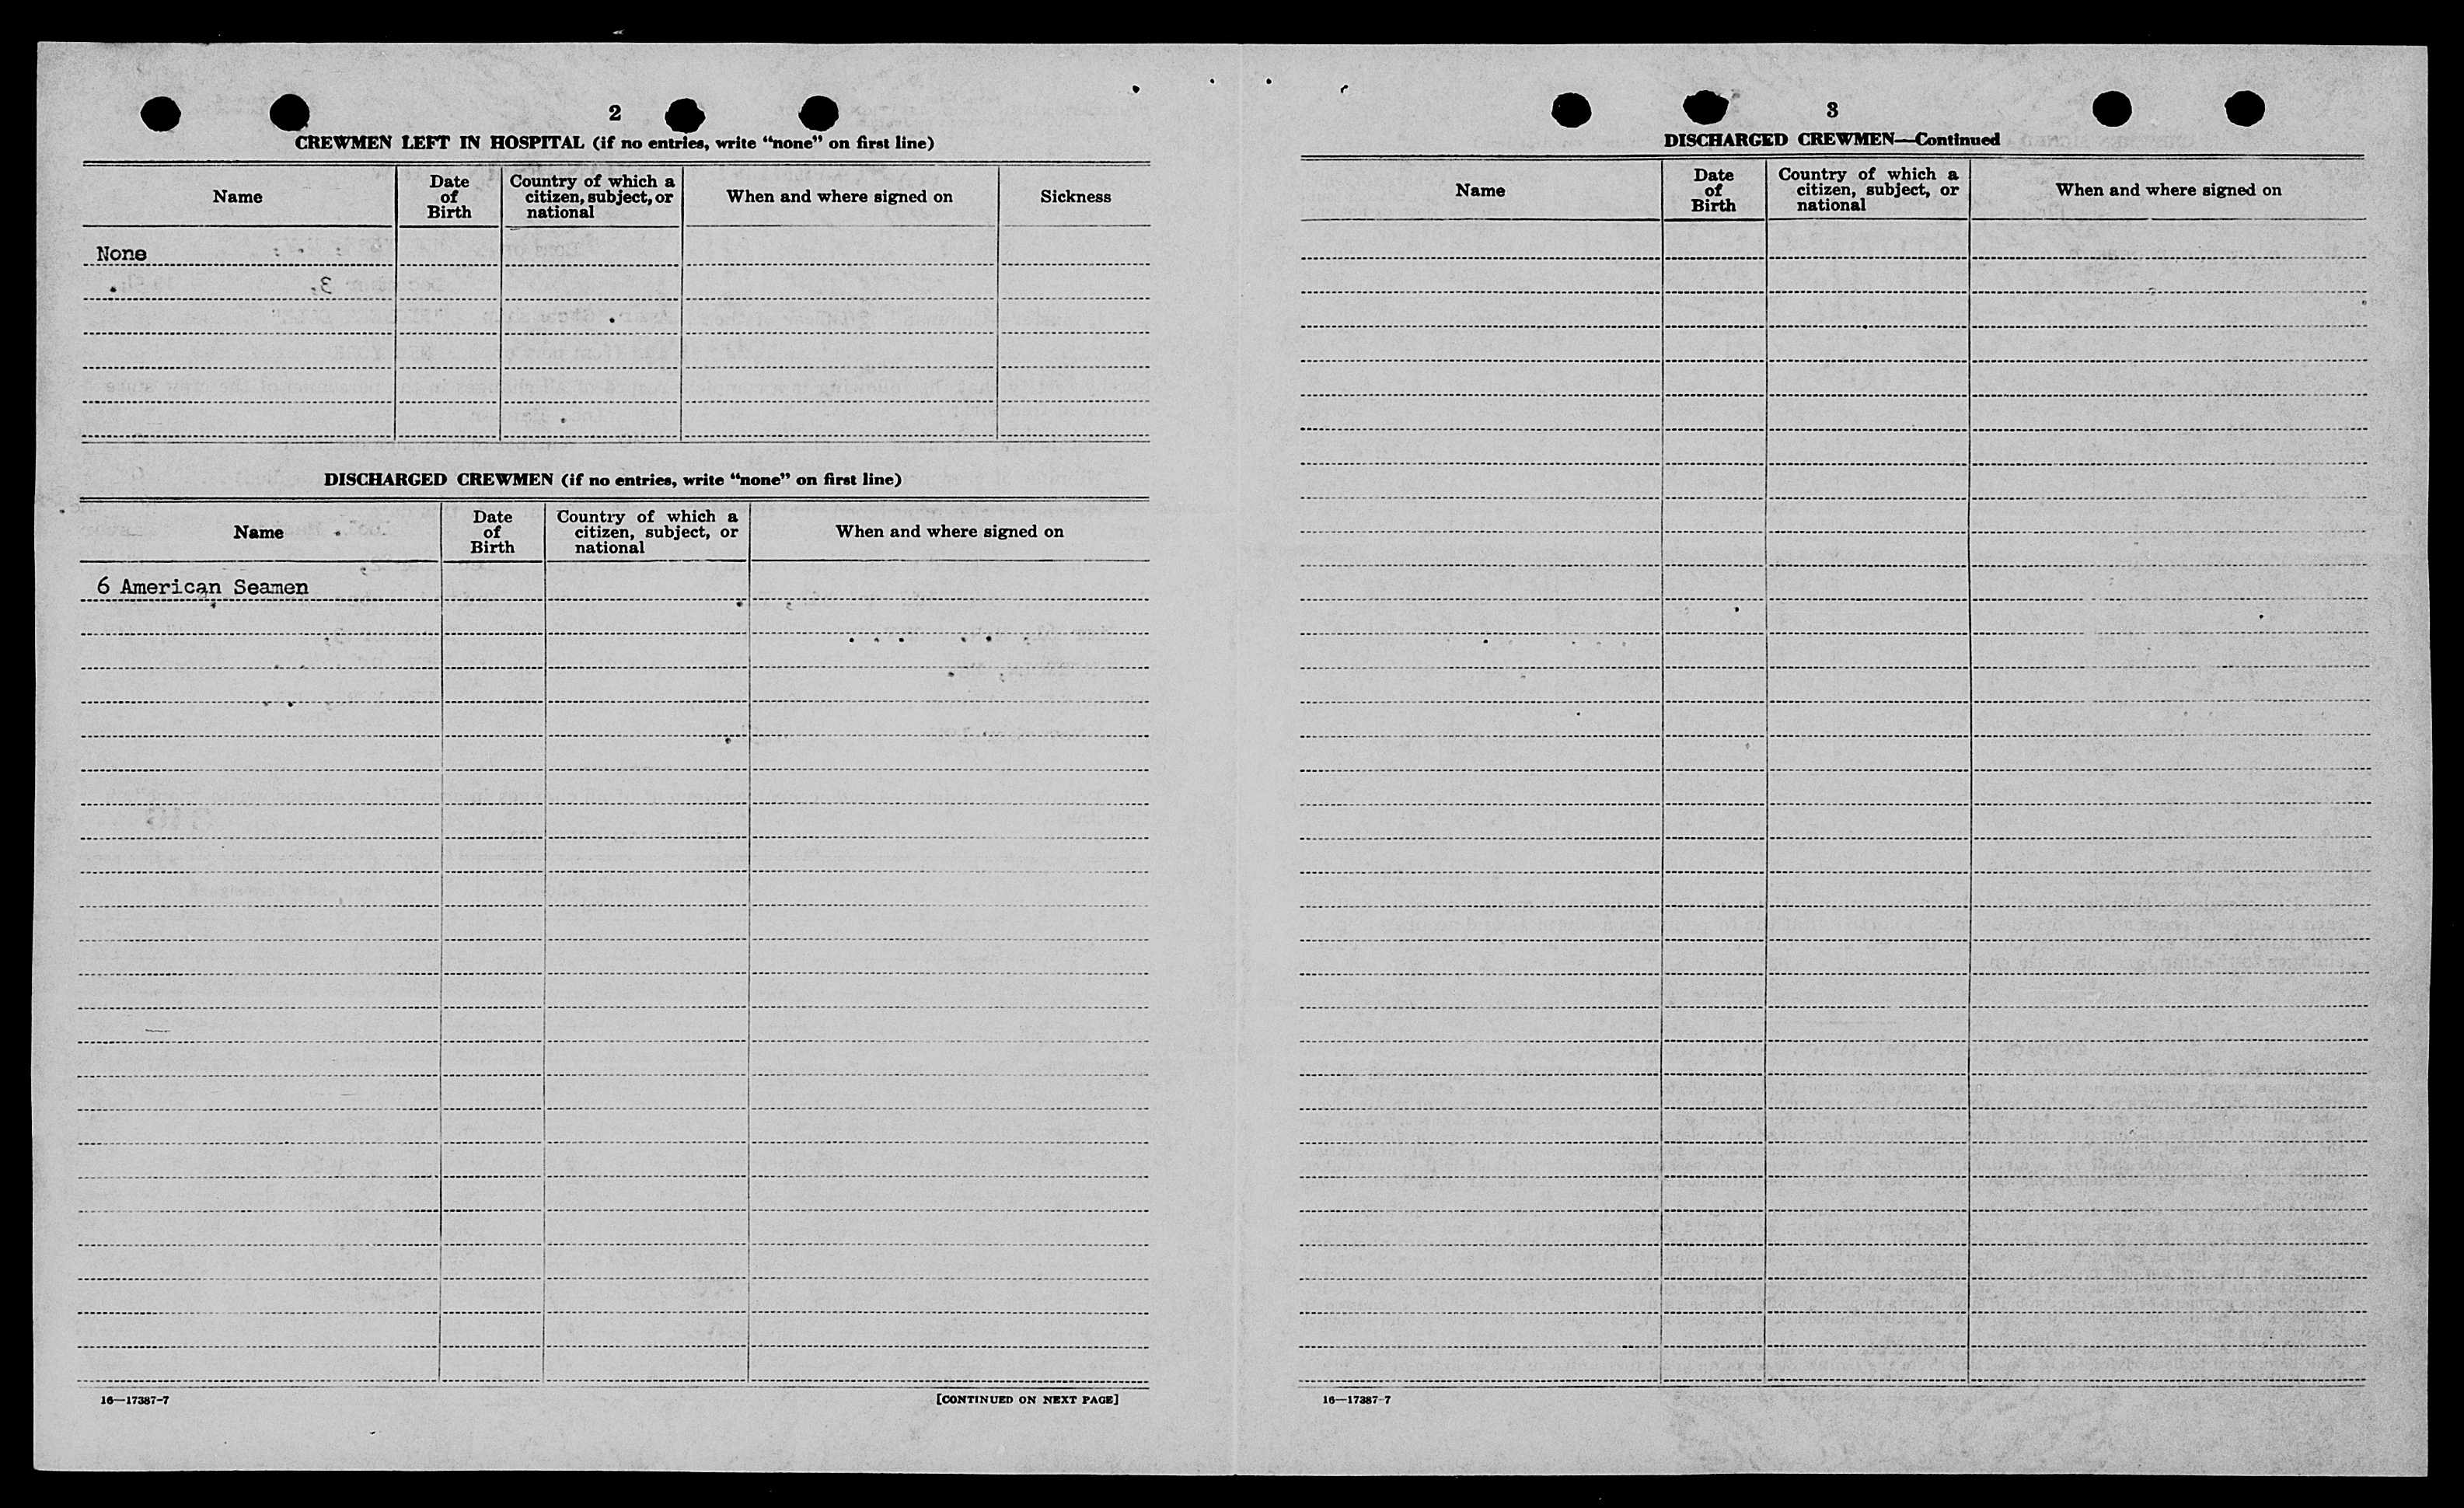 2
CREWMEN LEFT IN HOSPITAL (if no entries, write “none” on first line)
Name
Date of Birth
Country of which a citizen, subject, or national
When and where signed on
Sickness
None
DISCHARGED CREWMEN (if no entries, write “none” on first line)
Name
Date of Birth
Country of which a citizen, subject, or national
When and where signed on
6 American Seamen
16—17387-7
[CONTINUED ON NEXT PAGE]
3
DISCHARGED CREWMEN—Continued
Name
Date of Birth
Country of which a citizen, subject, or national
When and where signed on
16—17387-7